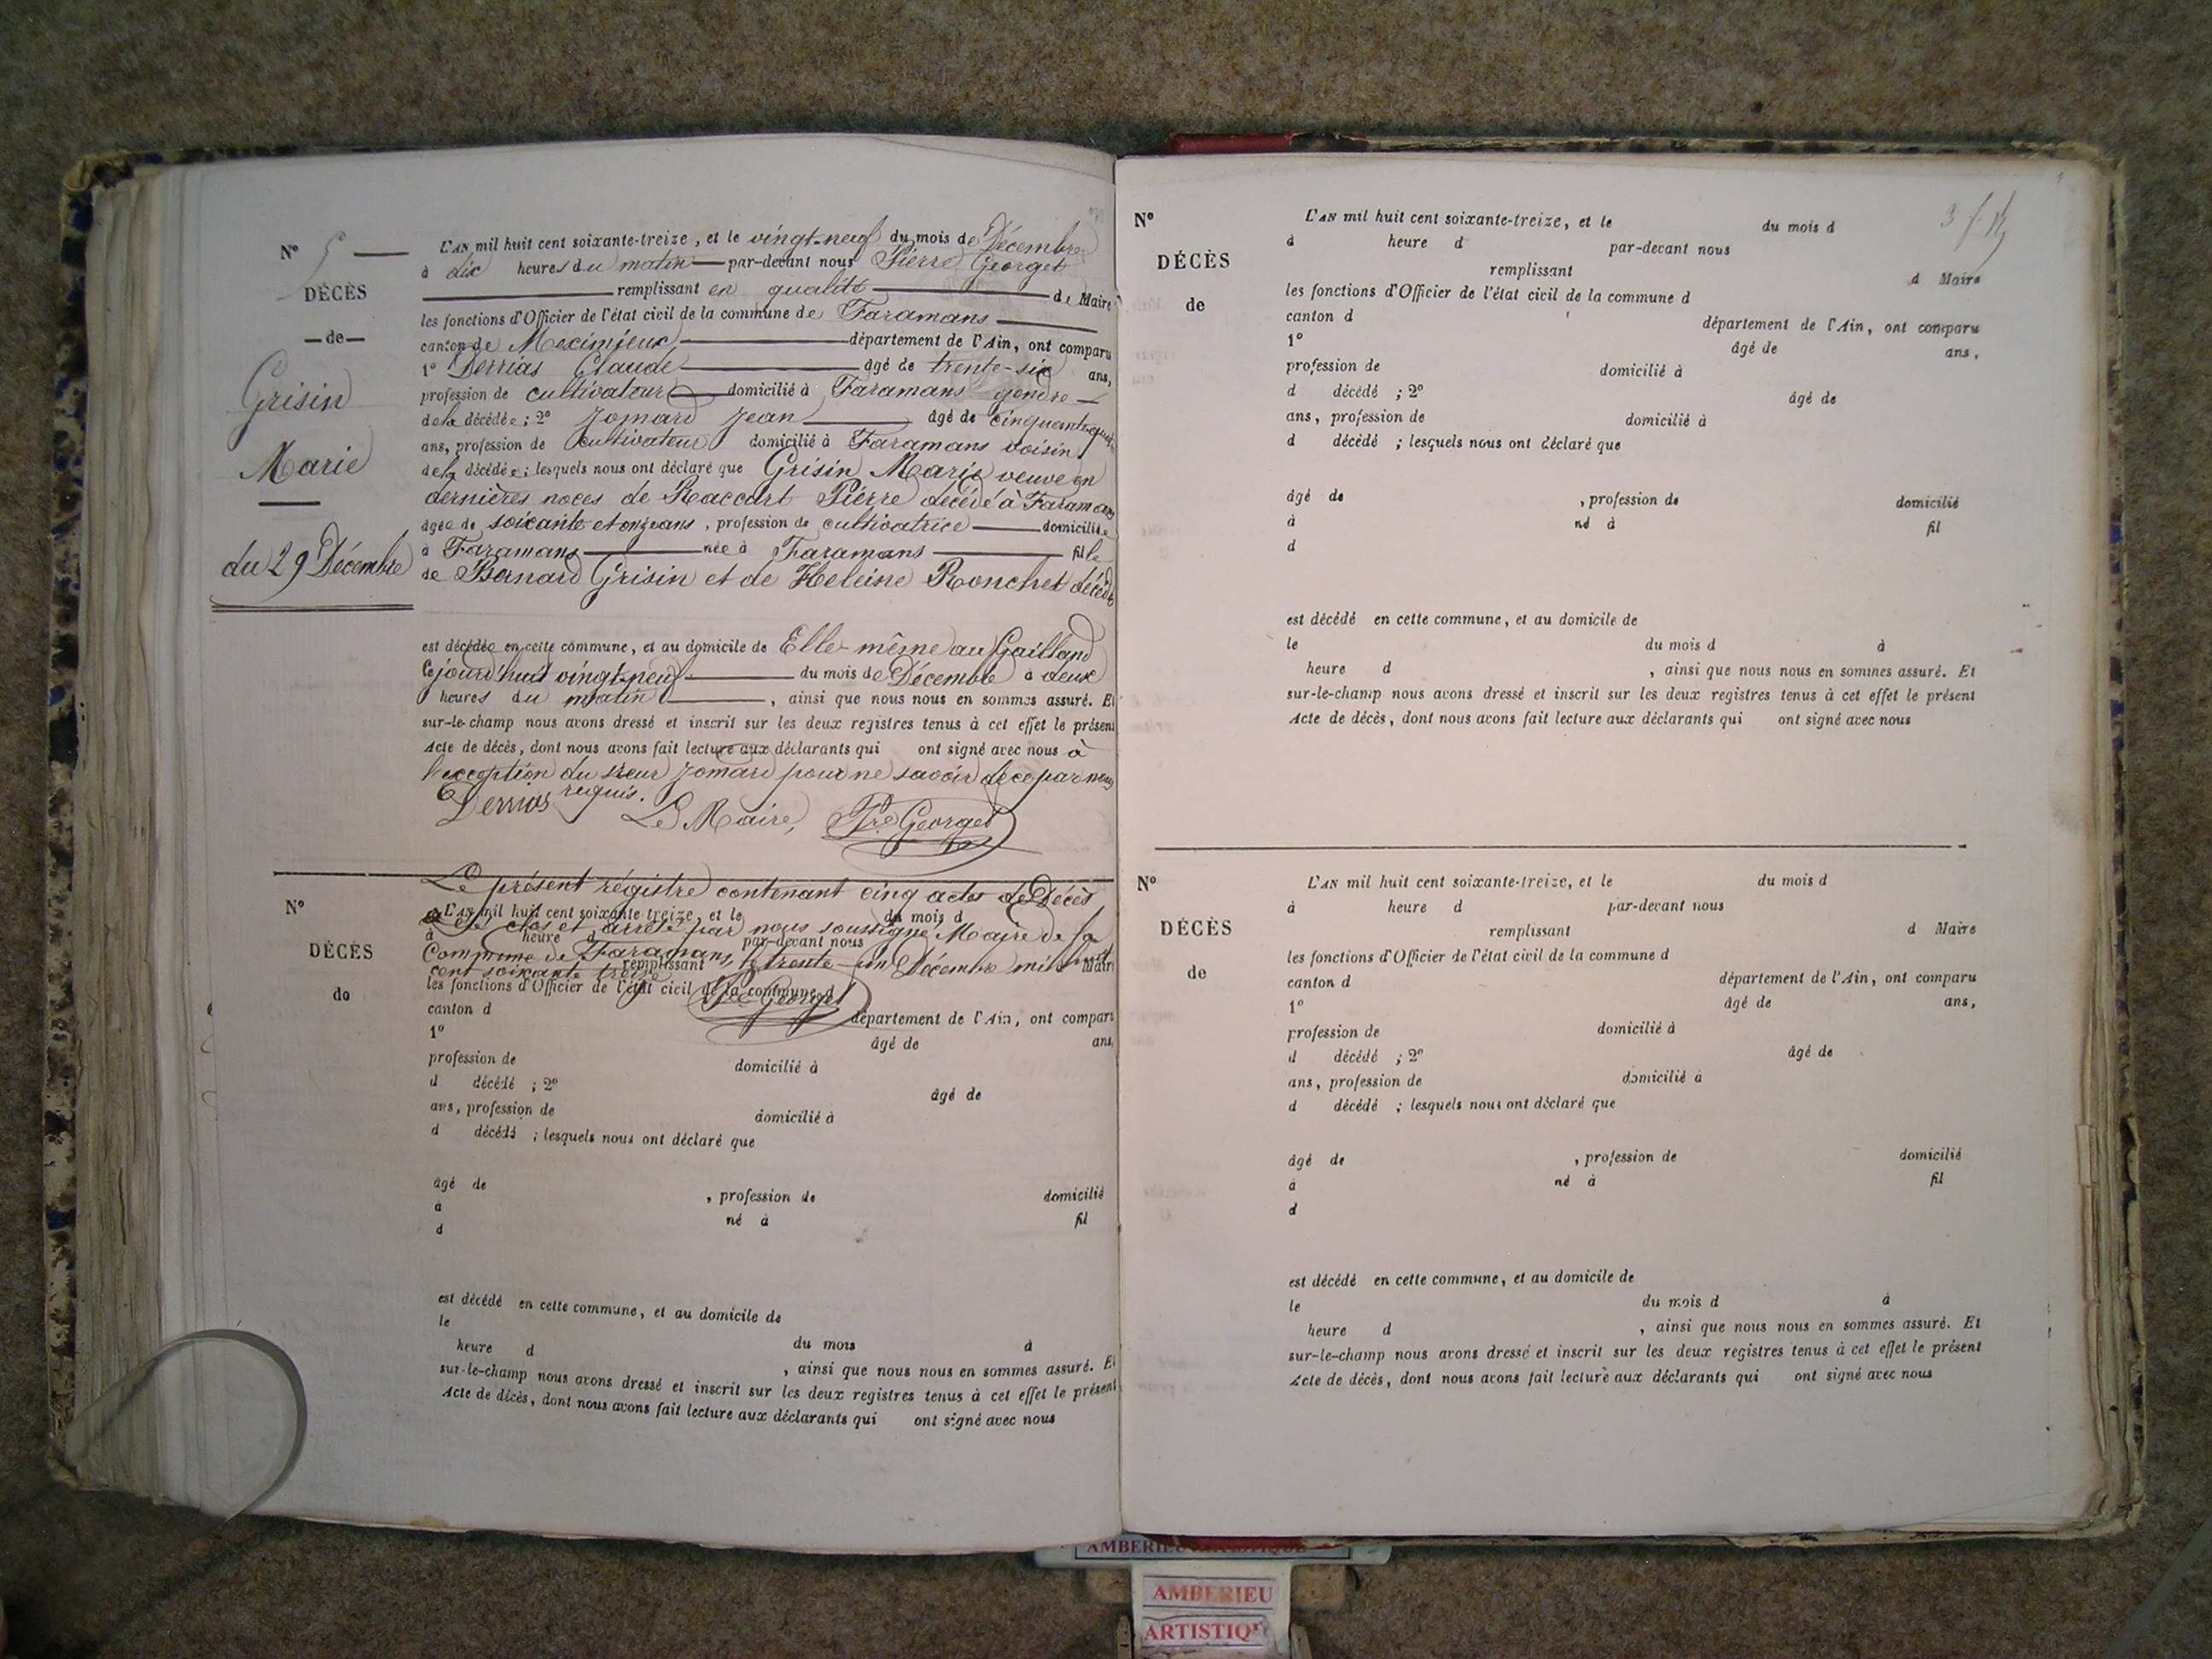 N° 5
DÉCÈS
de
Grisin
Marie
du 29 Décembre
L'AN mil huit cent soixante-treize, et le vingt-neuf du mois de Décembre
à dix heures du matin par-devant nous Pierre Georget
remplissant en qualité de Maire
les fonctions d'Officier de l'état civil de la commune de Faramans
canton de Meximieux département de l'Ain, ont comparu
1° Derrias Claude âgé de trente-six ans,
profession de cultivateur domicilié à Faramans gendre
de la décédée ; 2° Jomard Jean âgé de
ans, profession de cultivateur domicilié à Faramans voisin
de la décédée ; lesquels nous ont déclaré que Grisin Marie veuve en
dernières noces de Raccurt Pierre décédé à Faramans
âgée de soixante et onze ans, profession de cultivatrice domiciliée
à Faramans née à Faramans fille
de Bernard Grisin et de Heleine Ronchet décédés
est décédée en cette commune, et au domicile de Elle-même au Gailland
Cejourd'huit vingt-neuf du mois de Décembre à deux
heures du matin, ainsi que nous nous en sommes assuré. Et
sur-le-champ nous avons dressé et inscrit sur les deux registres tenus à cet effet le présent
Acte de décès, dont nous avons fait lecture aux déclarants qui ont signé avec nous à
l'exception du sieur Jomard pour ne savoir de ce par nous
requis.
Derrias Le Maire, Pre Georget
Le présent régistre contenant cinq actes de Décès
a été clos et arrêté par nous soussigné Maire de la
Commune de Faramans, le trente-un Décembre mil huit
cent soixante treize
Pre Georget
N°
DÉCÈS
de
L'AN mil huit cent soixante-treize, et le du mois d
à heure d par-devant nous
remplissant Maire
les fonctions d'Officier de l'état civil de la commune d
canton d département de l'Ain, ont comparu
1° âgé de ans,
profession de domicilié à
d décédé ; 2° âgé de
ans, profession de domicilié à
d décédé ; lesquels nous ont déclaré que
âgé de , profession de domicilié
à né à fil
d
est décédé en cette commune, et au domicile de
le du mois d à
heure d , ainsi que nous nous en sommes assuré. Et
sur-le-champ nous avons dressé et inscrit sur les deux registres tenus à cet effet le présent
Acte de décès, dont nous avons fait lecture aux déclarants qui ont signé avec nous
N°
DÉCÈS
de
L'AN mil huit cent soixante-treize, et le du mois d
à heure d par-devant nous
remplissant d Maire
les fonctions d'Officier de l'état civil de la commune d
canton d département de l'Ain, ont comparu
1° âgé de ans,
profession de domicilié à
d décédé ; 2° âgé de
ans, profession de domicilié à
d décédé ; lesquels nous ont déclaré que
âgé de , profession de domicilié
à né à fil
d
est décédé en cette commune, et au domicile de
le du mois d à
heure d , ainsi que nous nous en sommes assuré. Et
sur-le-champ nous avons dressé et inscrit sur les deux registres tenus à cet effet le présent
Acte de décès, dont nous avons fait lecture aux déclarants qui ont signé avec nous
N°
DÉCÈS
de
L'AN mil huit cent soixante-treize, et le du mois d
à heure d par-devant nous
remplissant d Maire
les fonctions d'Officier de l'état civil de la commune d
canton d département de l'Ain, ont comparu
1° âgé de ans,
profession de domicilié à
d décédé ; 2° âgé de
ans, profession de domicilié à
d décédé ; lesquels nous ont déclaré que
âgé de , profession de domicilié
à né à fil
d
est décédé en cette commune, et au domicile de
le du mois d à
heure d , ainsi que nous nous en sommes assuré. Et
sur-le-champ nous avons dressé et inscrit sur les deux registres tenus à cet effet le présent
Acte de décès, dont nous avons fait lecture aux déclarants qui ont signé avec nous
AMBERIEU ARTISTIQUE
AMBERIEU
ARTISTIQUE